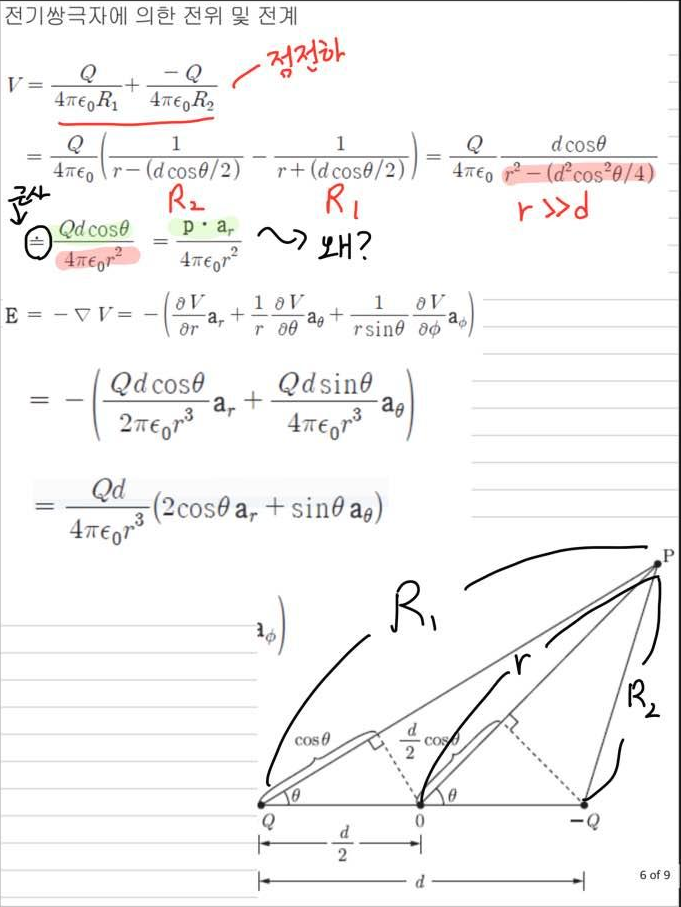 전기쌍극자에 의한 전위 및 전계
V = Q/(4πϵ₀R₁) + −Q/(4πϵ₀R₂) 점전하
= Q/(4πϵ₀) (1/(r−(dcosθ/2)) − 1/(r+(dcosθ/2))) = Q/(4πϵ₀) dcosθ/(r²−(d²cos²θ/4))
근사 R₂ R₁ r≫d
≐ Qdcosθ/(4πϵ₀r²) = p·aᵣ/(4πϵ₀r²) 왜?
E = −∇V = −(∂V/∂r aᵣ + 1/r ∂V/∂θ a_θ + 1/(rsinθ) ∂V/∂ϕ a_ϕ)
= −(Qdcosθ/(2πϵ₀r³) aᵣ + Qdsinθ/(4πϵ₀r³) a_θ)
= Qd/(4πϵ₀r³) (2cosθ aᵣ + sinθ a_θ)
P
R₁
a_ϕ)
r
R₂
cosθ d/2 cosθ
θ θ
Q 0 −Q
d/2
d
6 of 9